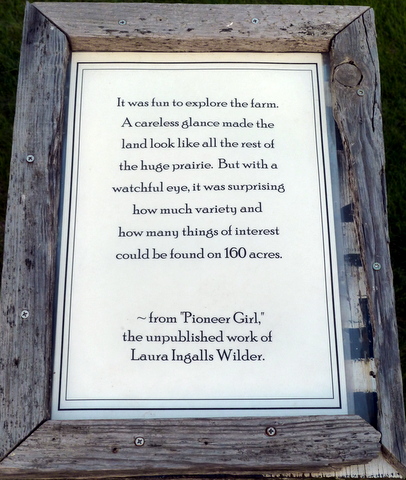 It was fun to explore the farm.
A careless glance made the
land look like all the rest of
the huge prairie. But with a
watchful eye, it was surprising
how much variety and
how many things of interest
could be found on 160 acres.
~ from "Pioneer Girl,"
the unpublished work of
Laura Ingalls Wilder.